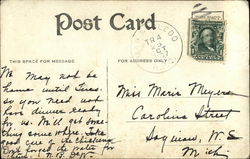 Post Card
THIS SPACE FOR MESSAGE
FOR ADDRESS ONLY
We may not be
home until Tues.
so you need not
have dinner ready
for us. We'll get some-
thing some where. Take
good care of the chickens
Miss Marie Meyers
Carolina Street
Saginaw, W. S.
Mich.